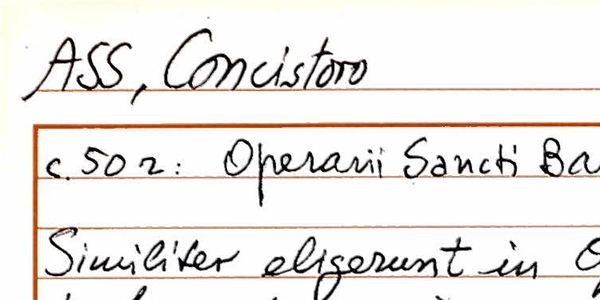 ASS, Concistoro
c. 50 r: Operarii Sancti Ba
Similiter eligerunt in